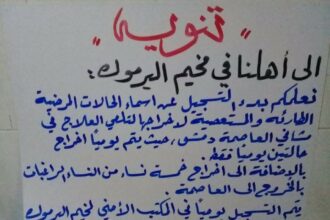 " تنويه "
الى أهلنا في مخيم اليرموك :
نعلمكم ببدء التسجيل عن اسماء الحالات المرضية
الطارئة والمستعصية لاخراجها لتلقي العلاج في
مشافي العاصمة دمشق، حيث يتم يومياً اخراج
حالتين يومياً فقط.
بالاضافة الى اخراج خمسة نساء من النساء الراغبات
بالخروج الى العاصمة .
يتم التسجيل يومياً في المكتب الأمني لمخيم اليرموك